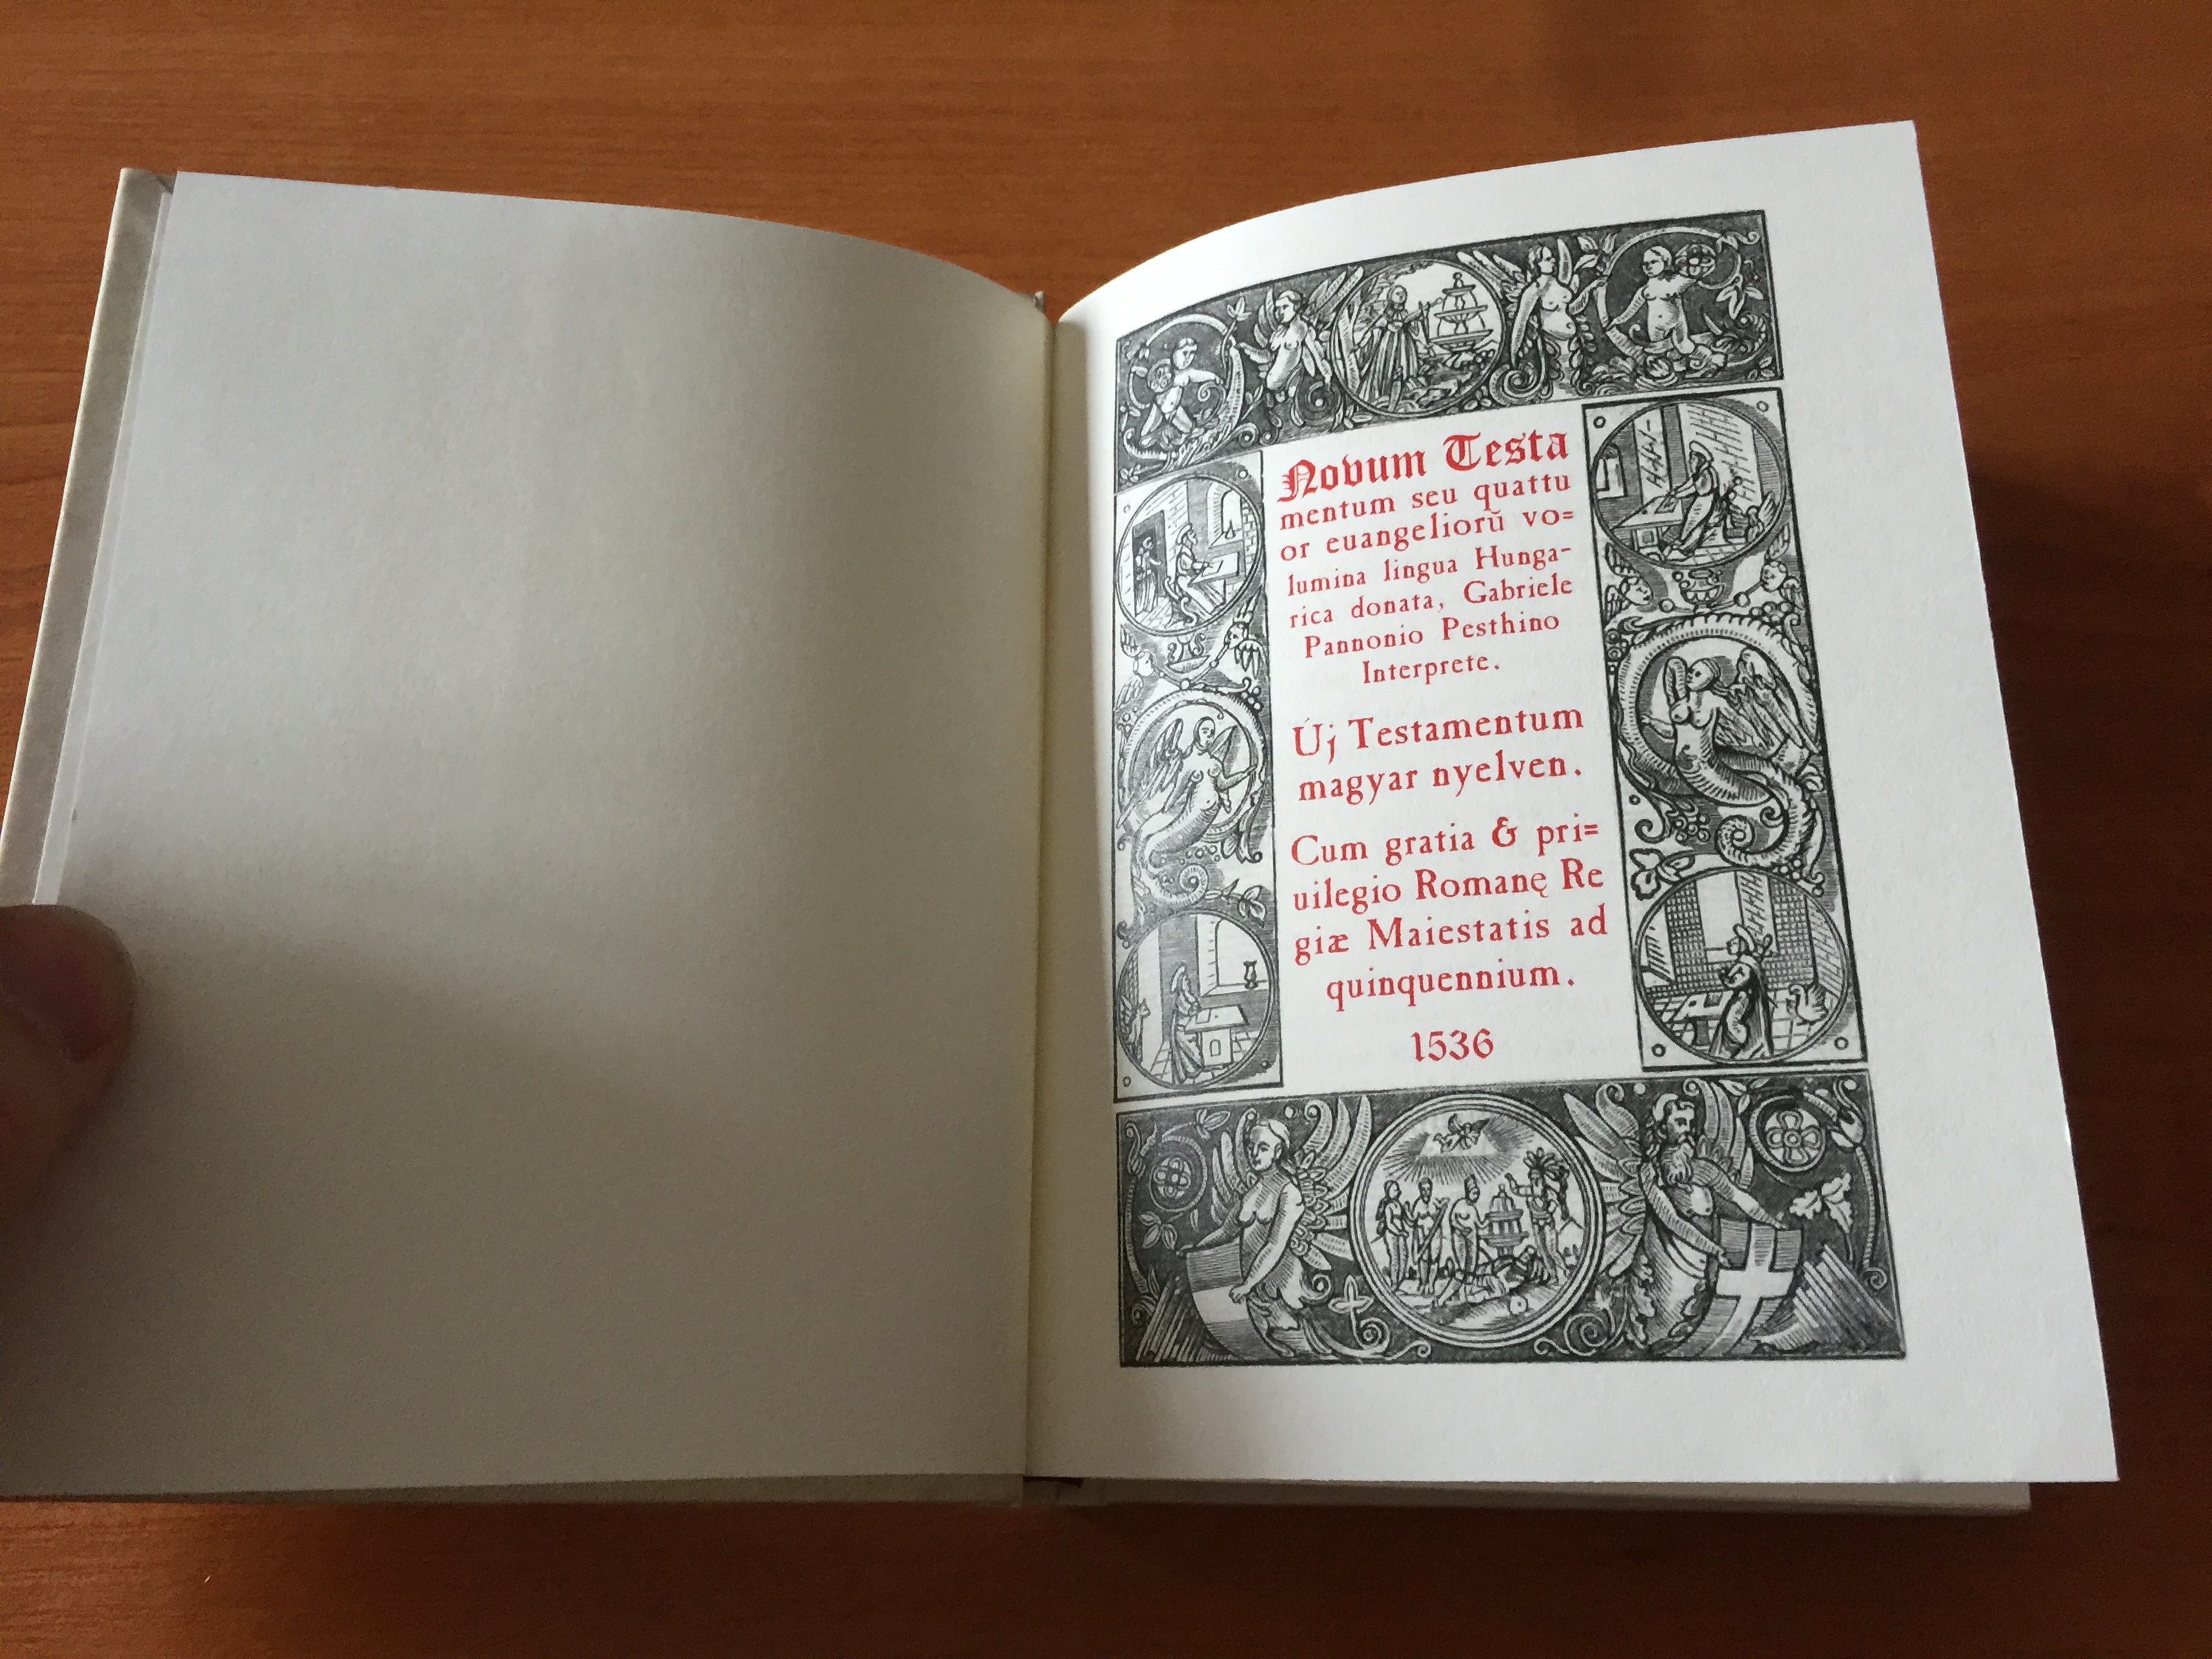 Novum Testa
mentum seu quattu
or euangeliorū vo=
lumina lingua Hunga-
rica donata, Gabriele
Pannonio Pesthino
Interprete.
Új Testamentum
magyar nyelven.
Cum gratia & pri=
uilegio Romanę Re
giæ Maiestatis ad
quinquennium.
1536